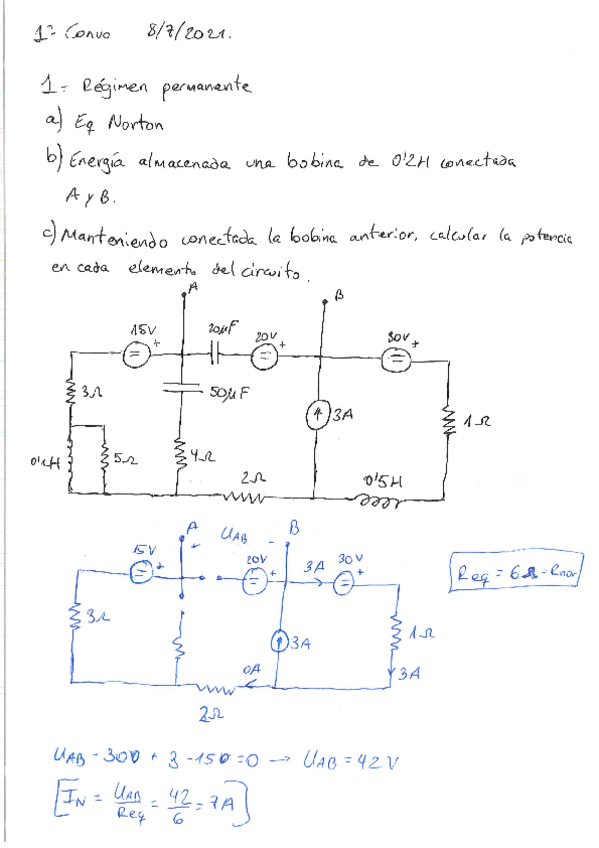 1ª Convo 8/7/2021.
1- Régimen permanente
a) Eq Norton
b) Energía almacenada una bobina de 0'2H conectada
A y B.
c) Manteniendo conectada la bobina anterior, calcular la potencia
en cada elemento del circuito.
A
B
15V
20μF
20V
30V
+
+
+
3Ω
50μF
3A
1Ω
0'1H
5Ω
4Ω
2Ω
0'5H
A
+ UAB -
B
15V
20V
3A
30V
+
+
+
Req = 6Ω = Rnor
3Ω
3A
1Ω
0A
3A
2Ω
UAB - 30 + 3 - 15 = 0 → UAB = 42V
[IN = UAB/Req = 42/6 = 7A]